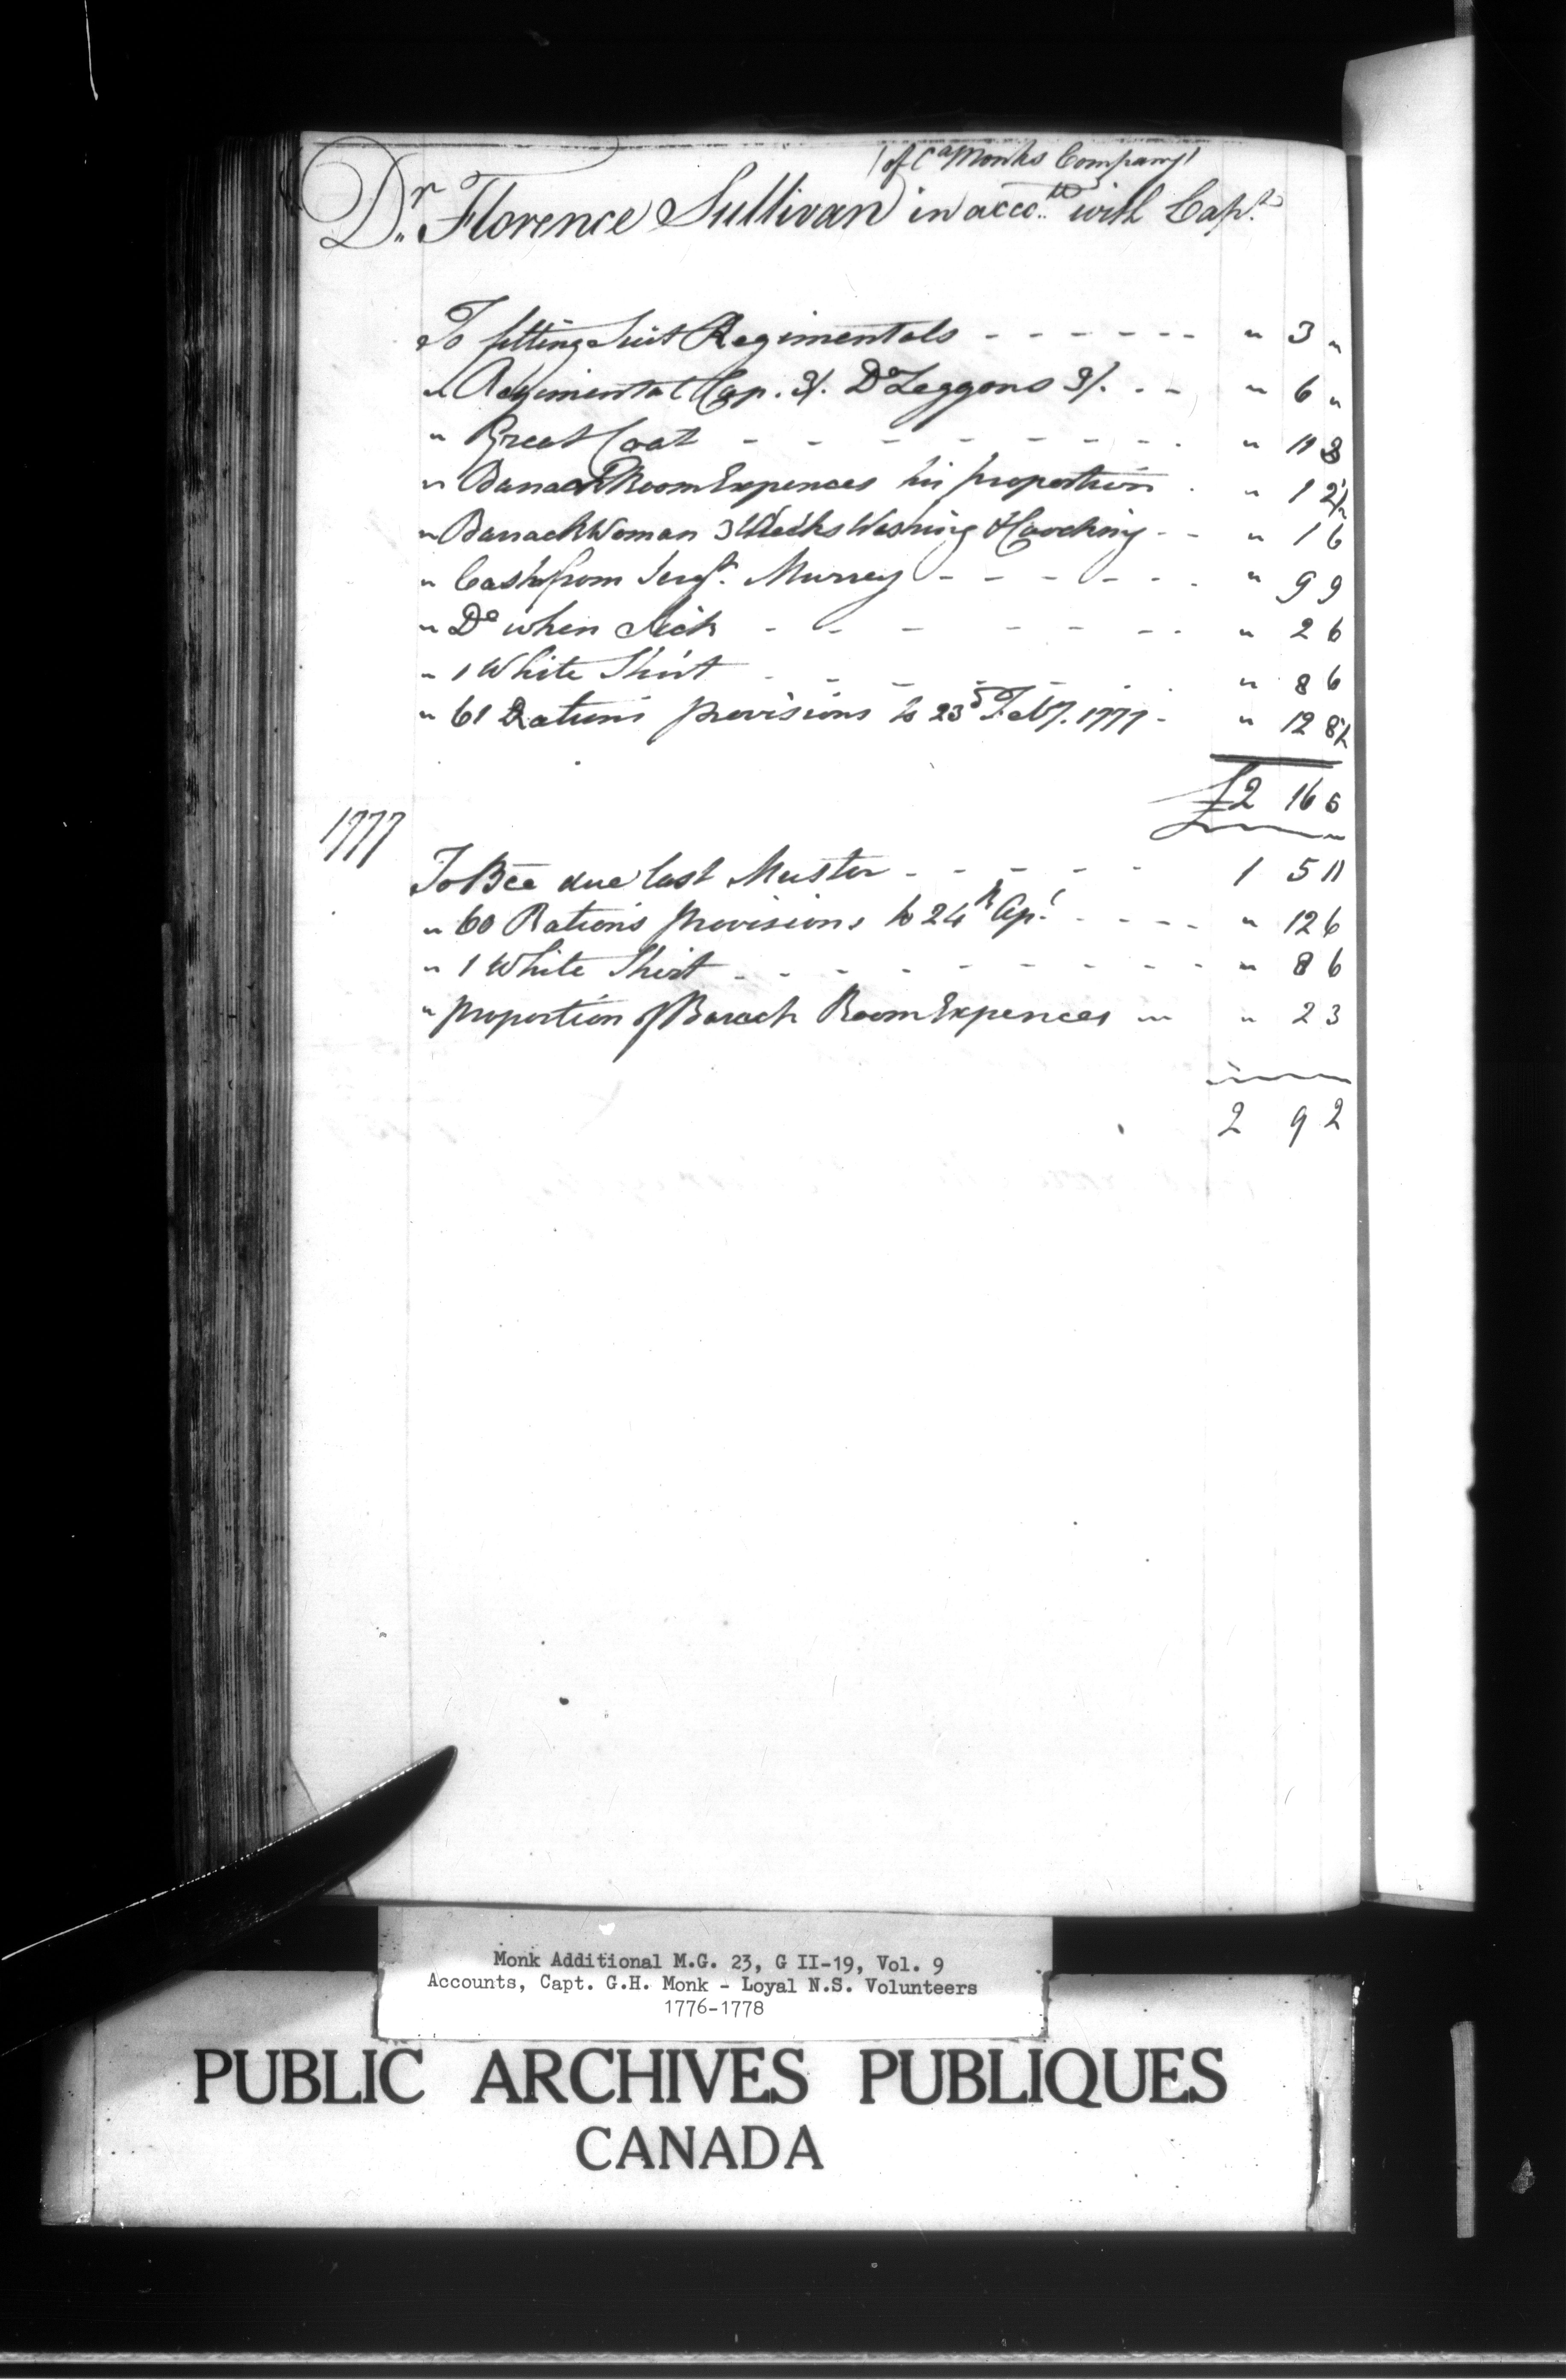 (of Ca Monks Company)
Dr. Florence Sullivan in accott with Capt
To fitting Suit Regimentals - - - - - - - " 3 "
" Regimental Cap. 3/. Do Leggons 3/. - - " 6 "
" Great Coat - - - - - - - - " 11 3
" Barrack Room Expences his proportion . " 1 2½
" Barrack Woman 3 Weeks Washing & Coocking - - " 1 6
" Cash from Sergt. Murrey - - - - - - " 9 9
" Do when Sick - - - - - - - " 2 6
" 1 White Shirt - - - - - - " 8 6
" 61 Rations provisions to 23d Feby. 1777 - " 12 8½
£2 16 5
1777
To Bce due last Muster - - - - - 1 5 11
" 60 Rations provisions to 24th Apl. - - - - " 12 6
" 1 White Shirt - - - - - - - - " 8 6
" proportion of Barack Room Expences " " 2 3
2 9 2
Monk Additional M.G. 23, G II-19, Vol. 9
Accounts, Capt. G.H. Monk - Loyal N.S. Volunteers
1776-1778
PUBLIC ARCHIVES PUBLIQUES
CANADA